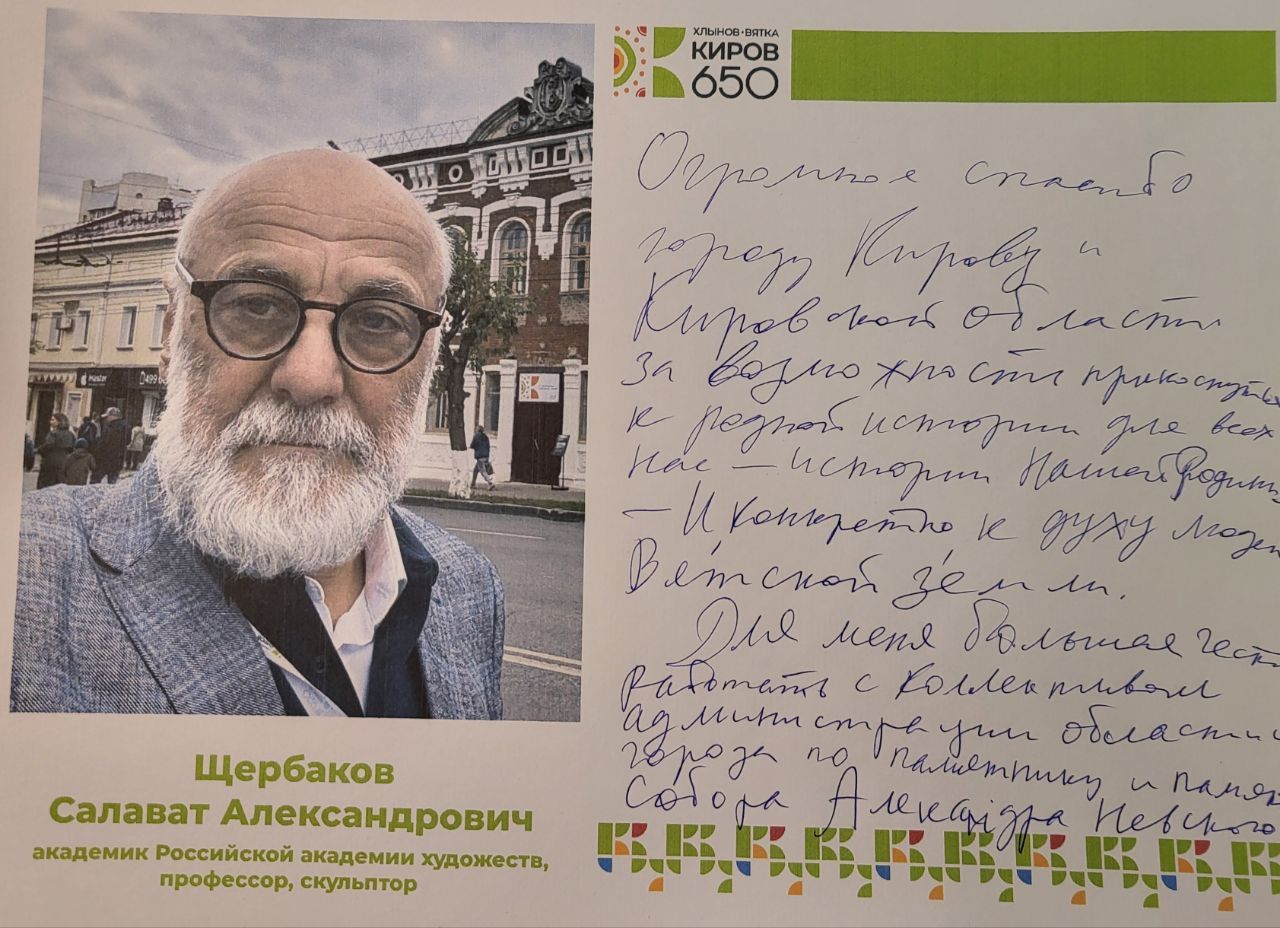 ХЛЫНОВ·ВЯТКА
КИРОВ
650
Огромное спасибо
городу Кирову и
Кировской области
за возможности прикоснуться
к родной истории для всех
нас — истории Нашей Родины
— И конкретно к духу людей
Вятской земли.
Для меня большая честь
работать с коллективом
администрации области и
города по памятнику и
Собора Александра Невского
Щербаков
Салават Александрович
академик Российской академии художеств,
профессор, скульптор